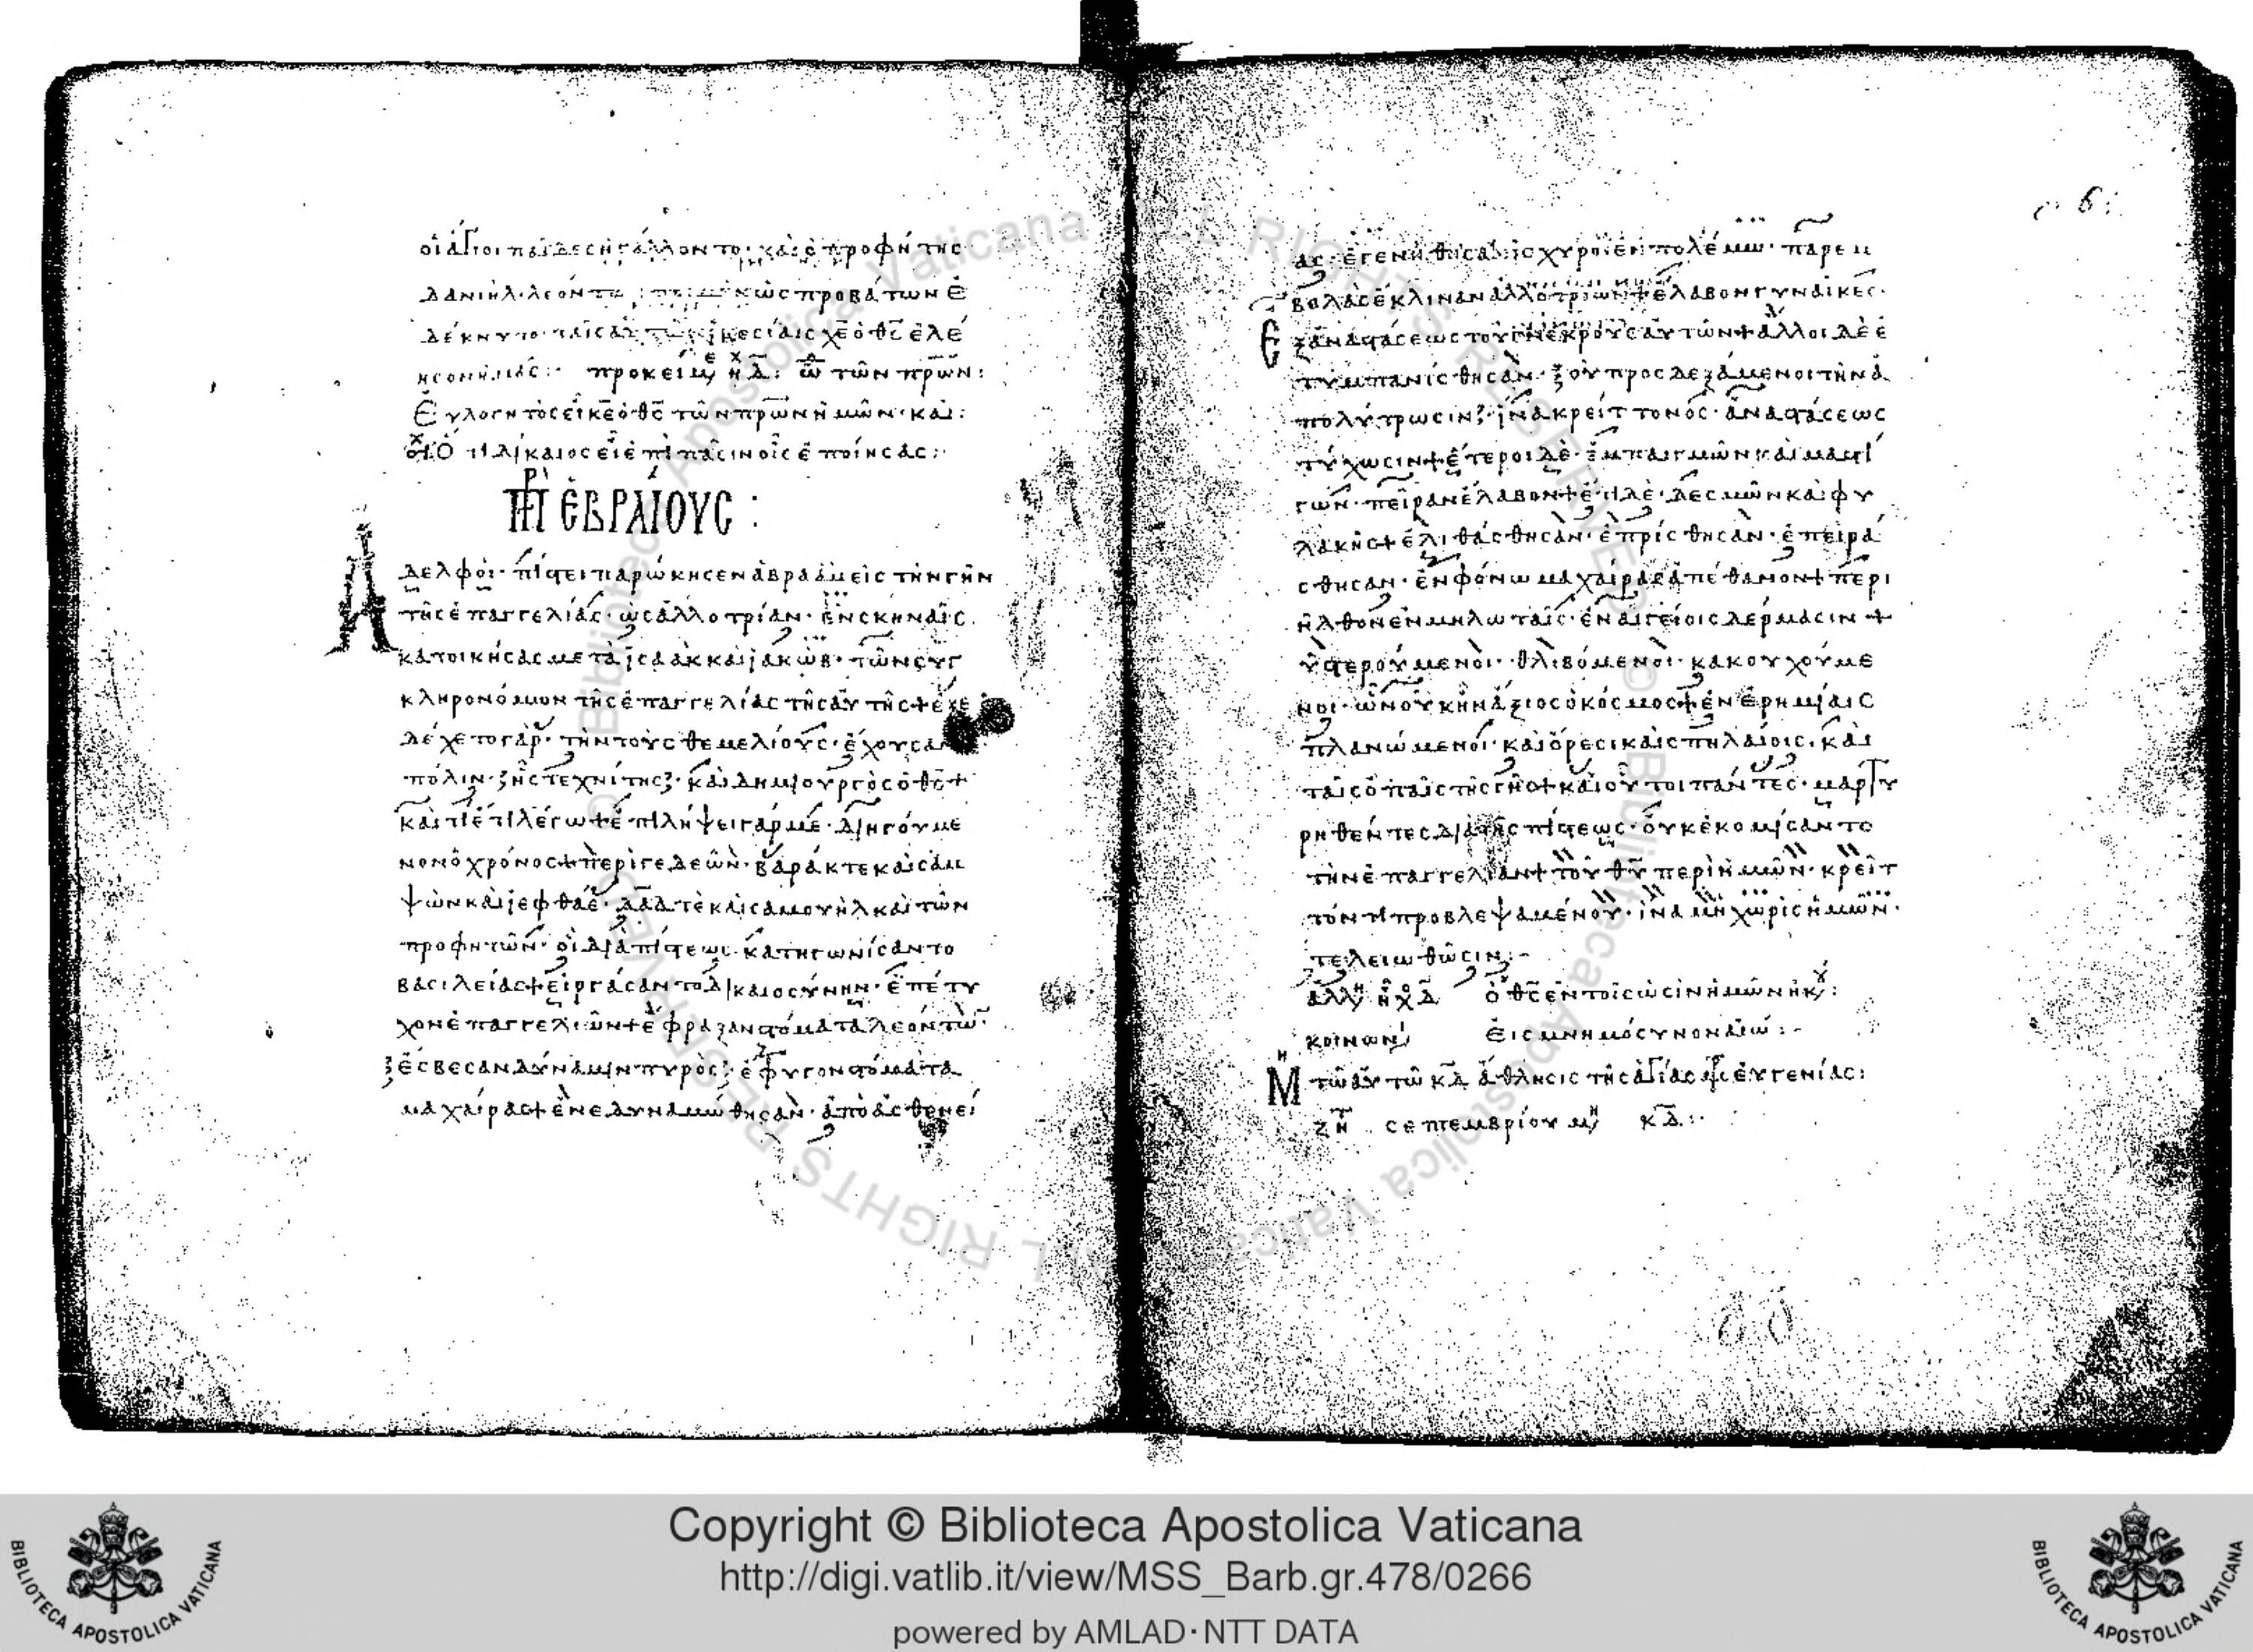 οἱ ἅγιοι παῖδες ἠγάλλοντο· καὶ ὁ προφήτης
δανιὴλ· λεόντων ὡς προβάτων ἐ
δείκνυτο· ταῖς αὐτῶν ἱκεσίαις χε ὁ θς ἐλέ
ησον ἡμᾶς:
προκείμ ἠχ δ: ᾠ τῶν πρων:
Εὐλογητὸς εἶ κε ὁ θς τῶν πρων ἡμῶν· καὶ:
στχ Ὅτι δίκαιος εἶ ἐπὶ πᾶσιν οἷς ἐποίησας:
ΠΡ ἙΒΡΑΊΟΥΣ:
Ἀδελφοὶ· πίστει παρώκησεν ἀβραὰμ εἰς τὴν γῆν
τῆς ἐπαγγελίας· ὡς ἀλλοτρίαν· ἐν σκηναῖς
κατοικήσας μετὰ ἰσαὰκ καὶ ἰακὼβ· τῶν συγ
κληρονόμων τῆς ἐπαγγελίας τῆς αὐτῆς + ἐξε
δέχετο γὰρ· τὴν τοὺς θεμελίους· ἔχουσαν
πόλιν· ἧς τεχνίτης· καὶ δημιουργὸς ὁ θς +
καὶ τί ἔτι λέγω + ἐπιλήψει γάρ με· διηγούμε
νον ὁ χρόνος + περὶ γεδεὼν· βαράκ τε καὶ σαμ
ψὼν καὶ ἰεφθάε· δαδ τὲ καὶ σαμουὴλ καὶ τῶν
προφητῶν· οἳ διὰ πίστεως κατηγωνίσαντο
βασιλείας + εἰργάσαντο δικαιοσύνην· ἐπέτυ
χον ἐπαγγελιῶν + ἔφραξαν στόματα λεόντων·
ἔσβεσαν δύναμιν πυρὸς· ἔφυγον στόματα
μαχαίρας + ἐνεδυναμώθησαν· ἀπὸ ἀσθενεί
ας· ἐγενήθησαν ἰσχυροὶ ἐν πολέμω· παρεμ
βολὰς ἔκλιναν ἀλλοτρίων + ἔλαβον γυναῖκες·
Ἐξ ἀναστάσεως τοὺς νεκροὺς αὐτῶν + ἄλλοι δὲ ἐ
τυμπανίσθησαν· οὐ προσδεξάμενοι τὴν ἀ
πολύτρωσιν· ἵνα κρείττονος· ἀναστάσεως
τύχωσιν + ἕτεροι δὲ· ἐμπαιγμῶν καὶ μαστί
γων· πεῖραν ἔλαβον + ἔτι δὲ· δεσμῶν καὶ φυ
λακῆς + ἐλιθάσθησαν· ἐπρίσθησαν· ἐπειρά
σθησαν· ἐν φόνω μαχαίρας ἀπέθανον + περι
ῆλθον ἐν μηλωταῖς· ἐν αἰγείοις δέρμασιν +
ὑστερούμενοι· θλιβόμενοι· κακουχούμε
νοι· ὧν οὐκ ἦν ἄξιος ὁ κόσμος + ἐν ἐρημίαις
πλανώμενοι· καὶ ὄρεσι καὶ σπηλαίοις· καὶ
ταῖς ὀπαῖς τῆς γῆς + καὶ οὗτοι πάντες· μαρτυ
ρηθέντες διὰ τῆς πίστεως· οὐκ ἐκομίσαντο
τὴν ἐπαγγελίαν + τοῦ θυ περὶ ἡμῶν· κρεῖτ
τόν τι προβλεψαμένου· ἵνα μὴ χωρὶς ἡμῶν·
τελειωθῶσιν:-
ἀλλη ἠχ δ ὁ θς ἐν τοῖς ὠσὶν ἡμῶν ἠκ:
κοινων εἰς μνημόσυνον αἰω:-
Μη τῶ αὐτῶ κδ ἄθλησις τῆς ἁγίας ἐυγενίας:
ζητ σεπτεμβρίου μη κδ:
6
Copyright © Biblioteca Apostolica Vaticana
http://digi.vatlib.it/view/MSS_Barb.gr.478/0266
powered by AMLAD·NTT DATA
BIBLIOTECA APOSTOLICA VATICANA
BIBLIOTECA APOSTOLICA VATICANA